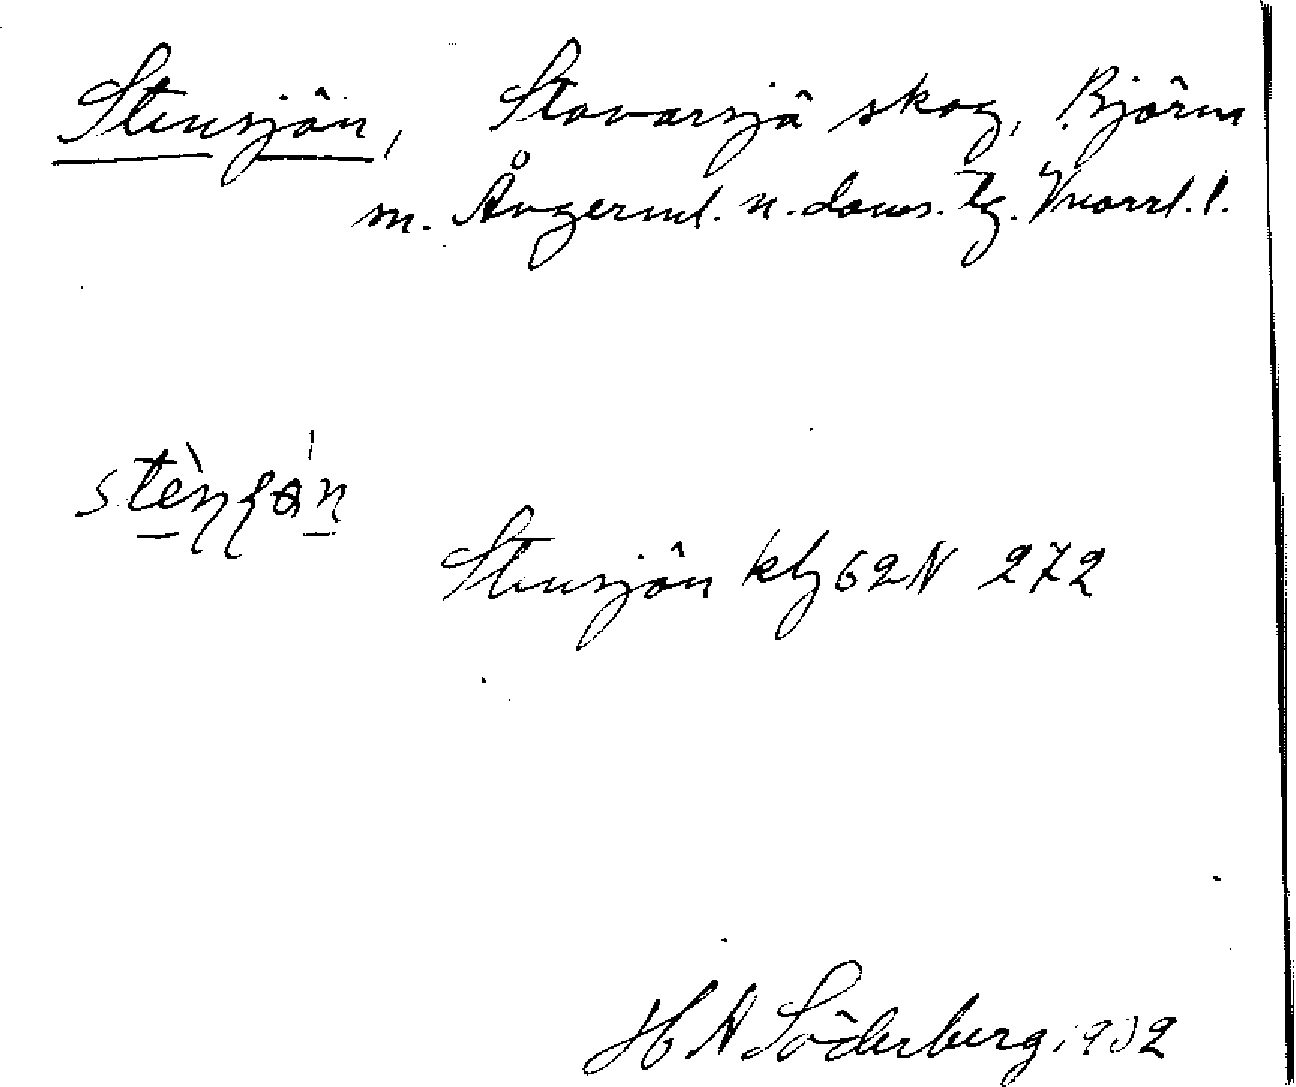 Stensjön, Stavarsjö skog, Björna
m. Ångerml. n. doms. tg. Vnorrl. l.
Stensjön kbl 62 N 272
H A Söderberg 1932